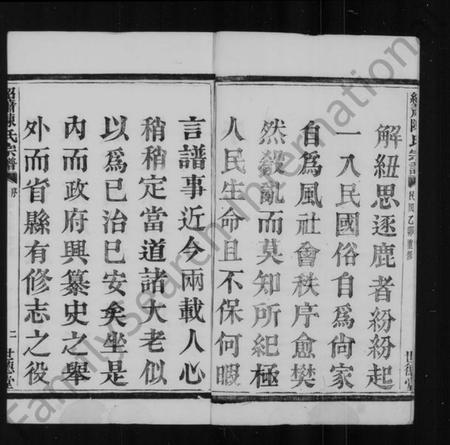 解紐思逐鹿者紛紛起
一入民國俗自為尙家
自為風社會秩序愈樊
然殽亂而莫知所紀極
人民生命且不保何暇
言譜事近今兩載人心
稍稍定當道諸大老似
以爲已治已安矣坐是
內而政府興纂史之舉
外而省縣有修志之役
陳氏宗譜
序
二
世德堂
FamilySearch International